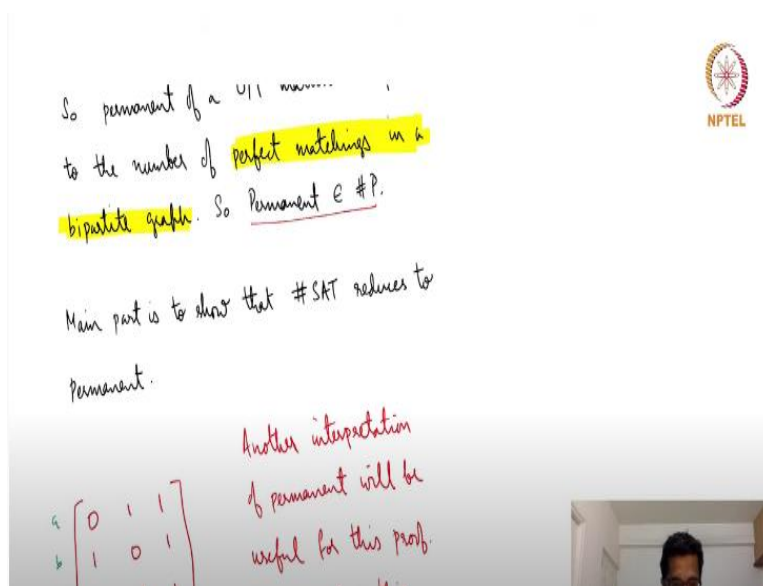 So permanent of a 0/1
to the number of perfect matchings in a
bipartite graph. So Permanent ∈ #P.
Main part is to show that #SAT reduces to
Permanent.
Another interpretation
of permanent will be
useful for this proof.
a 0 1 1
b 1 0 1
NPTEL